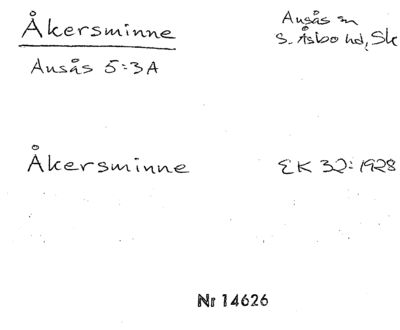 Åkersminne
Ausås sn
S. Åsbo hd, Sk
Ausås 5:3A
Åkersminne
EK 32:1928
Nr 14626